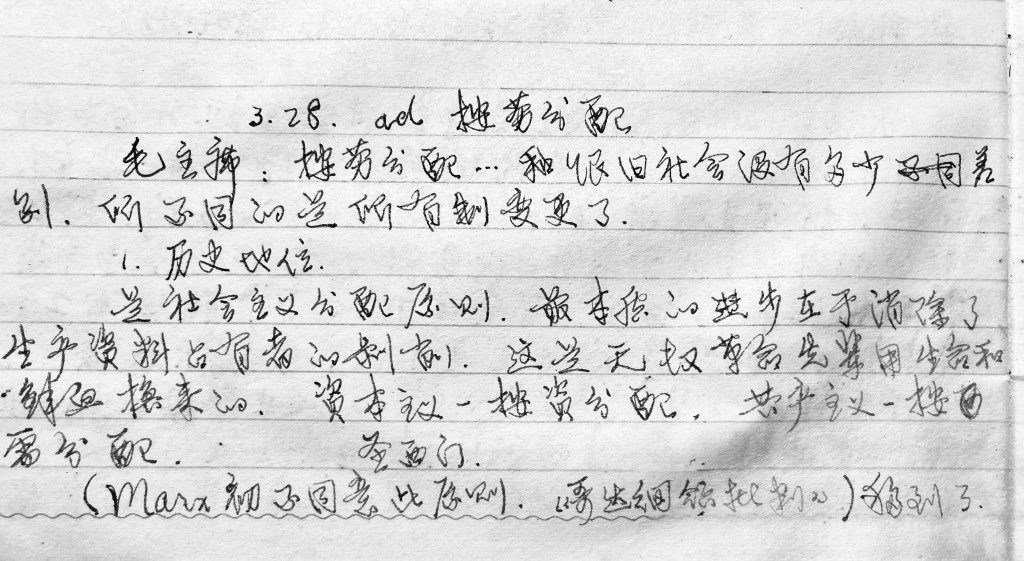 3.28. ad 按劳分配
毛主席：按劳分配…和旧社会没有多少不同差
别．所不同的是所有制变更了．
1. 历史地位．
是社会主义分配原则．最本质的进步在于消除了
生产资料占有者的剥削．这是无权革命先辈用生命和
鲜血换来的．资本主义—按资分配．共产主义—按
需分配． 圣西门．
(Marx 初不同意此原则．《哥达纲领批判》) 到了．